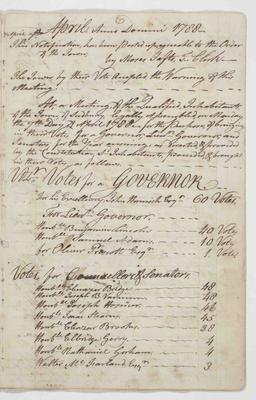 April Anno Domini 1788
This Notification, has been posted up agreeable to the Order
of the Town
by Moses Clerk
The Town by their Vote Accepted the Warning of this
Meeting
At a Meeting of the Qualified Inhabitants
of the Town of Sudbury legally assembled on Monday
the Day of April 1788 for the Purpose of bringing
in their Votes for a Governor, Lieut Governor, and
Senators for the Year ensuing, as directed & provided
by the Constitution, the Inhabitants, proceeded & brought
in their Votes, as follows
Votes for a GOVERNOR
for his Excellency John Hancock Esqr. 60 Votes
For Lieut. Governor.
Honble Benjamin Lincoln 40 Votes
Honble Samuel Adams 10 Votes
for Oliver Prescott Esqr 1 Vote
Votes for Councellors & Senators.
Honble Ebenezer Bridge 48
Honble Joseph B. Varnum 48
Honble Joseph Hosmer 46
Honble Isaac Stearns 45
Honble Eleazar Brooks 38
Honble Elbridge Gerry 4
Honble Nathaniel Gorham 4
Walter Mc.Farland Esqr 3